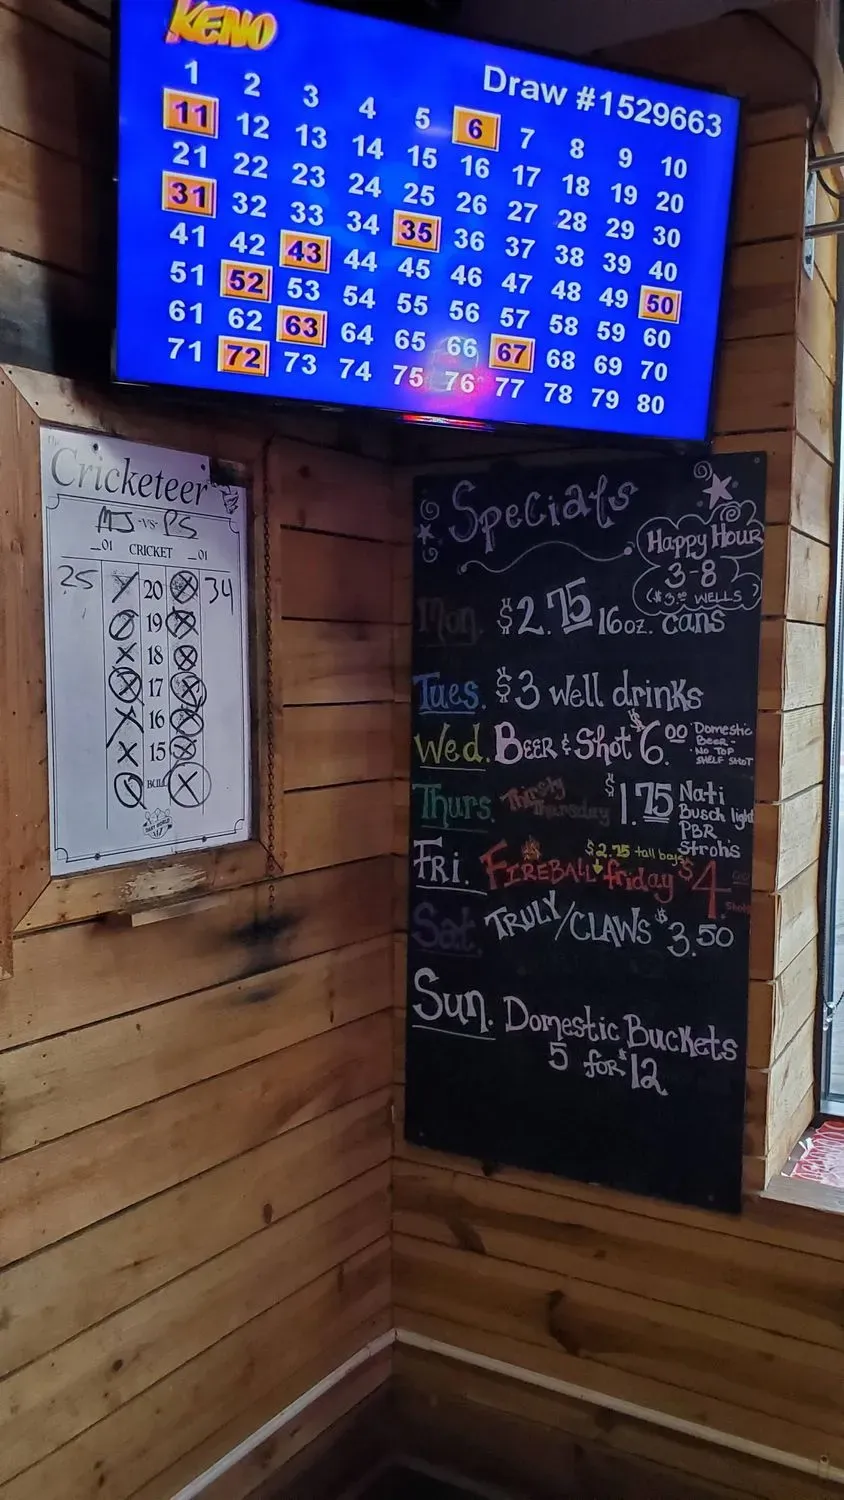 KENO
Draw #1529663
1 2 3 4 5 6 7 8 9 10
11 12 13 14 15 16 17 18 19 20
21 22 23 24 25 26 27 28 29 30
31 32 33 34 35 36 37 38 39 40
41 42 43 44 45 46 47 48 49 50
51 52 53 54 55 56 57 58 59 60
61 62 63 64 65 66 67 68 69 70
71 72 73 74 75 76 77 78 79 80
The
Cricketeer
MJ -VS- PS
_01 CRICKET _01
25 20 34
19
18
17
16
15
BULL
DART WORLD
Specials
Happy Hour
3-8
($3.00 WELLS)
Mon. $2.75 16oz. cans
Tues. $3 well drinks
Wed. Beer & Shot $6.00 Domestic
Beer -
No Top
Shelf Shot
Thurs. Thirsty Thursday $1.75 Nati
Busch light
PBR
Strohs
$2.75 tall boys
Fri. Fireball friday $4.00 shots
Sat. TRULY/CLAWS $3.50
Sun. Domestic Buckets
5 for $12